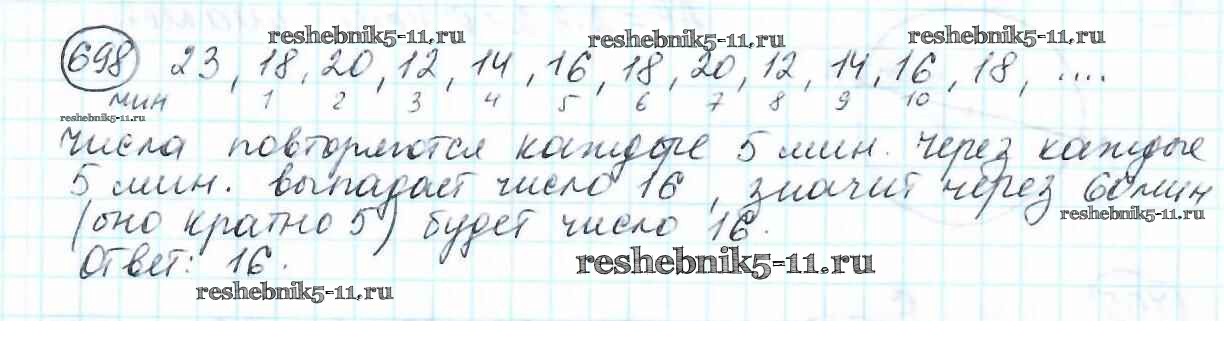 reshebnik5-11.ru reshebnik5-11.ru reshebnik5-11.ru
698 23, 18, 20, 12, 14, 16, 18, 20, 12, 14, 16, 18, ....
мин 1 2 3 4 5 6 7 8 9 10
reshebnik5-11.ru
числа повторяются каждые 5 мин. Через каждые
5 мин. выпадает число 16, значит через 60 мин
reshebnik5-11.ru
(оно кратно 5) будет число 16.
Ответ: 16.
reshebnik5-11.ru
reshebnik5-11.ru